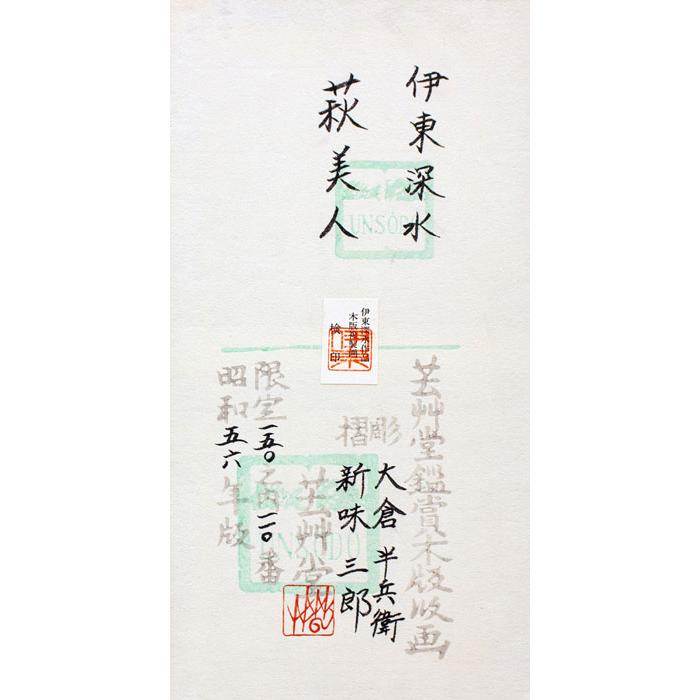 伊東深水
萩美人
UNSŌDŌ
検印
芸艸堂鑑賞木版版画
彫 大倉半兵衛
摺 新味三郎
芸艸堂
UNSŌDŌ
限定一五〇之内一一〇番
昭和五六年版